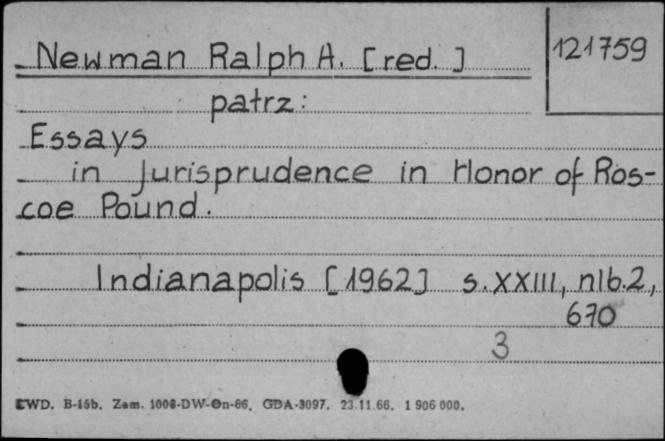 Newman Ralph A. [red.]
121759
patrz:
Essays
in Jurisprudence in Honor of Ros-
coe Pound.
Indianapolis [1962] s. XXIII, nlb. 2,
670
3
CWD. B-15b. Zam. 1008-DW-On-66. GDA-3097. 23.11.66. 1 906 000.